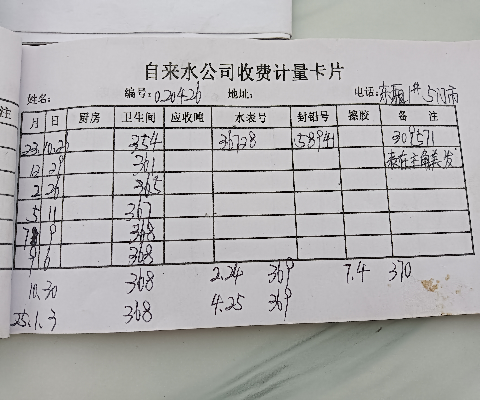 自来水公司收费计量卡片
姓名: 编号:020426 地址: 电话: 1# 5门市
注 月 日 厨房 卫生间 应收吨 水表号 封铅号 橡胶 备 注
23.10.25 354 36728 5894 309571
12 29 361
2 26 365
5 11 367
7 9 368
9 6 368
10.30 368 2.24 369 7.4 370
25.1.3 368 4.25 369